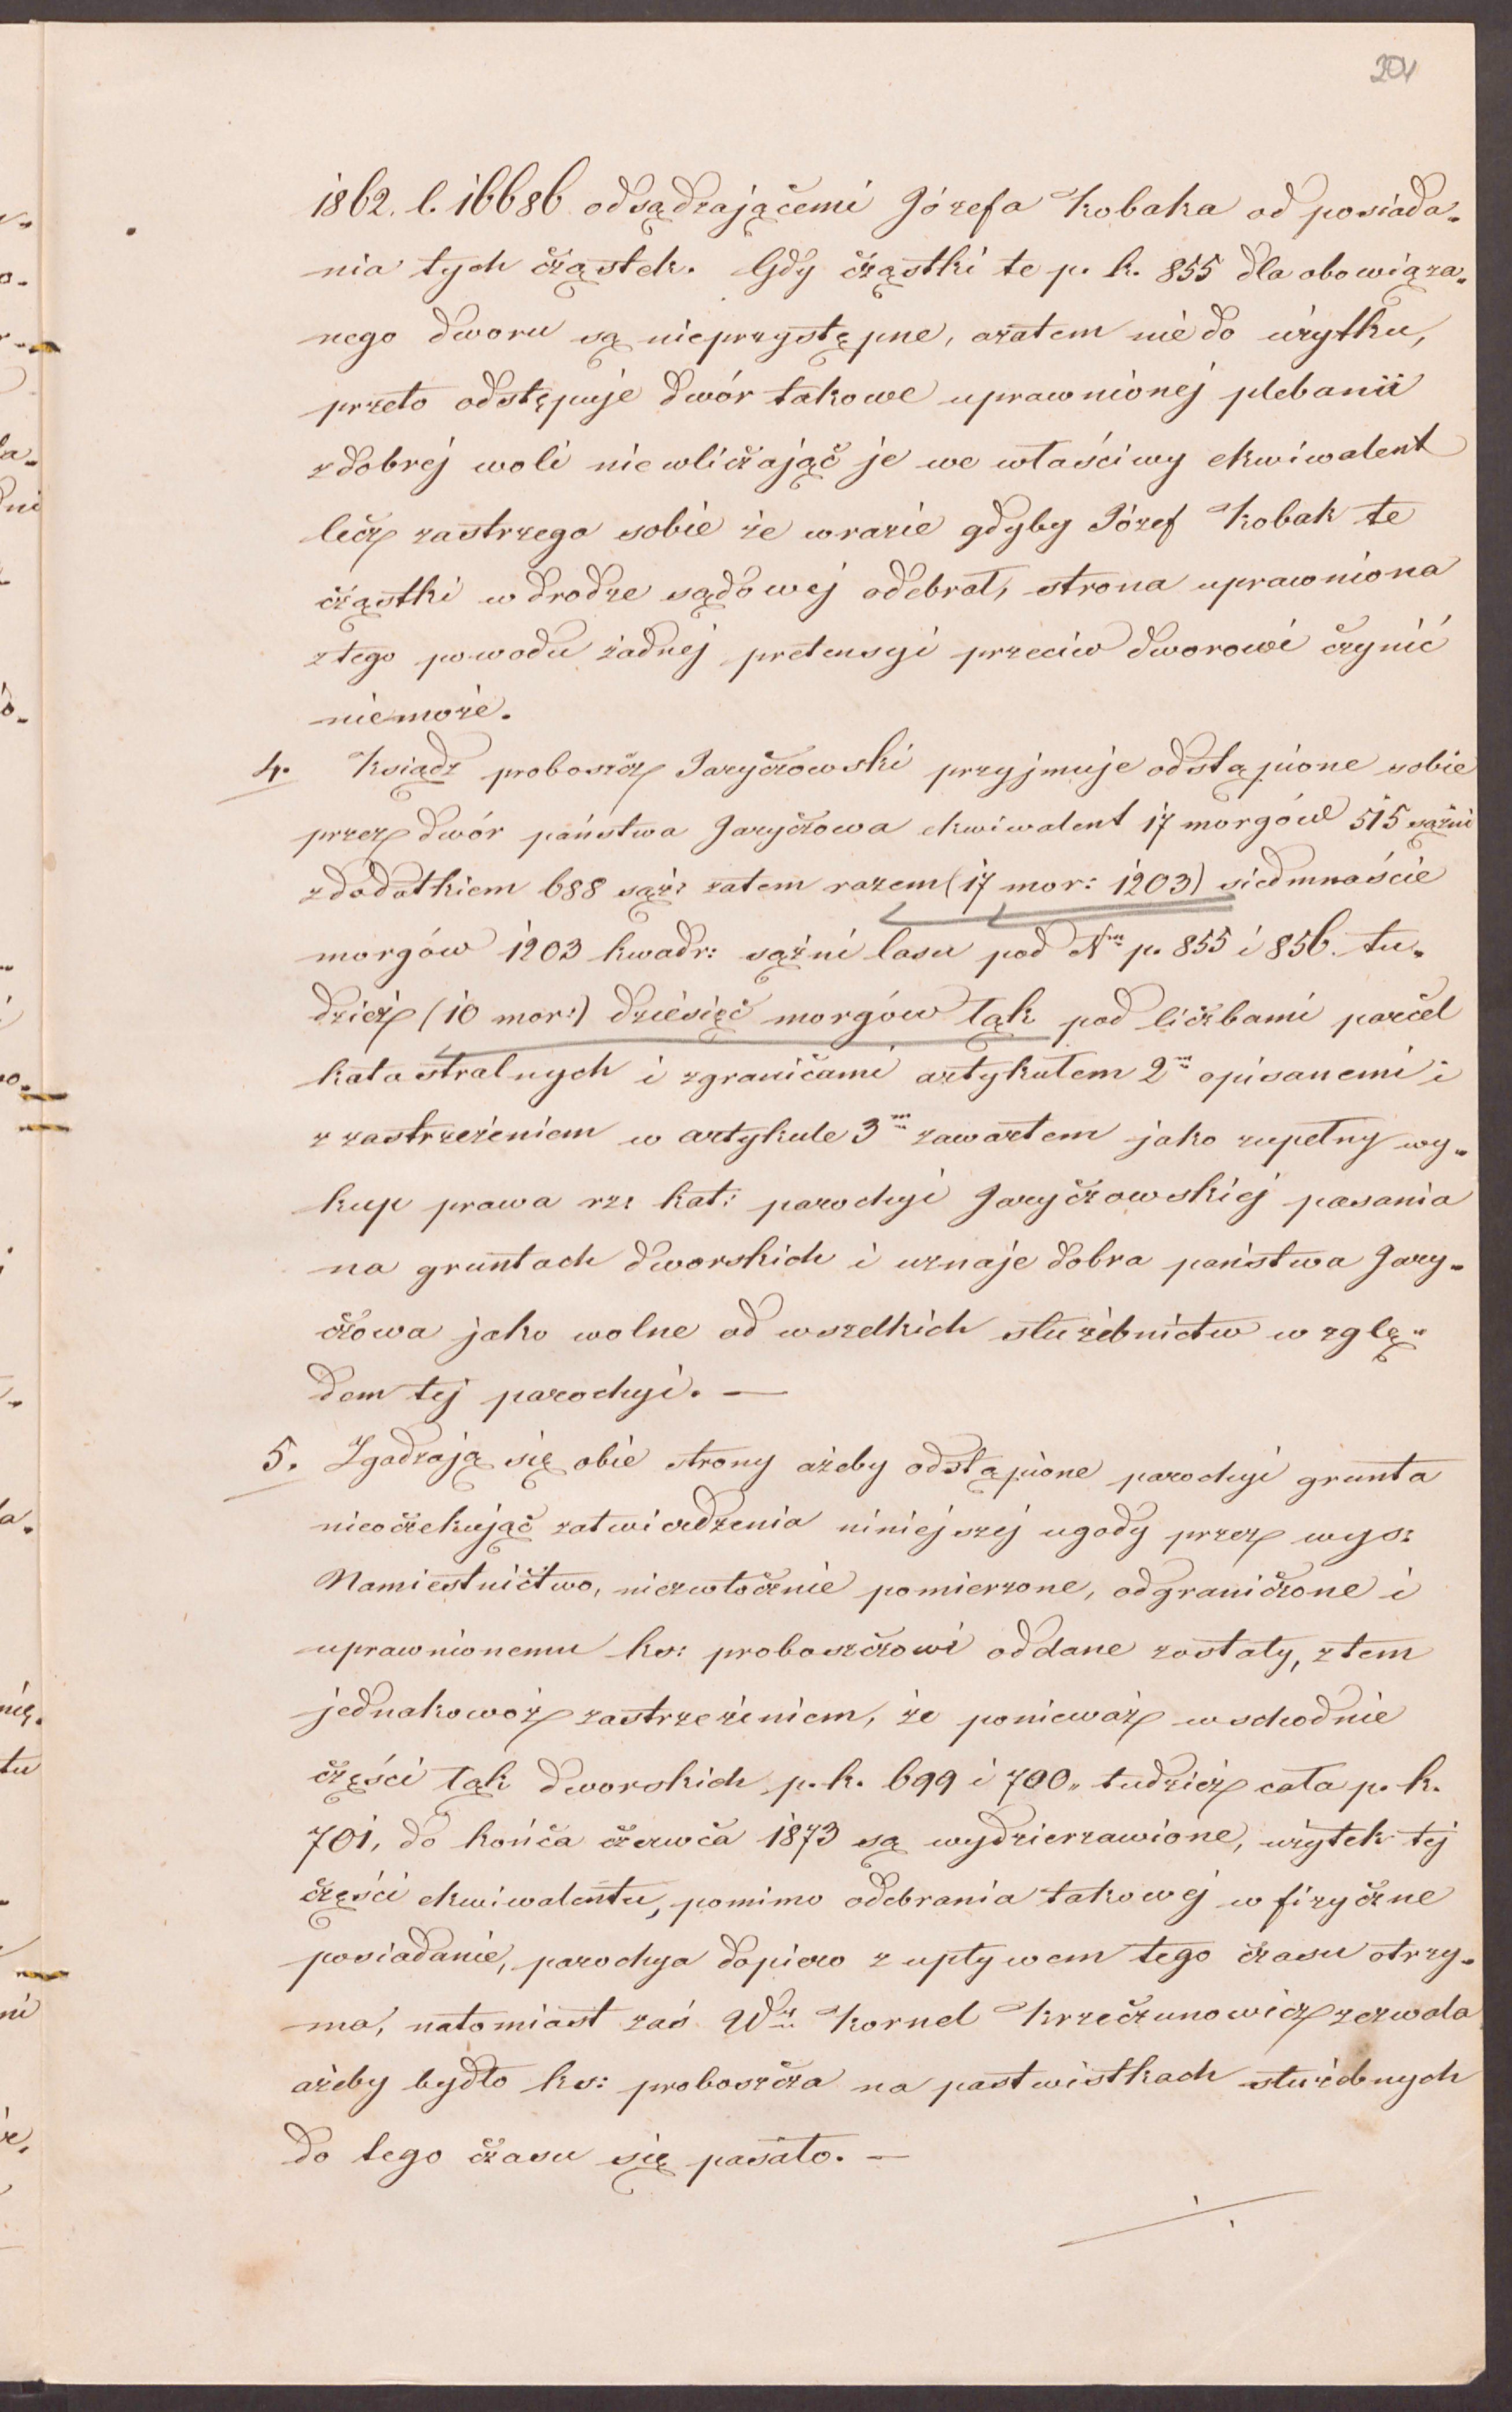 201
1862. l. 16686 odsądzającemi Józefa Kobaka od posiada-
nia tych cząstek. Gdy cząstki te p. k. 855 dla obowiąza-
nego dworu są nieprzystępne, azatem nie do użytku,
przeto odstępuje dwór takowe uprawnionej plebanii
z dobrej woli niewliczając je we właściwy ekwiwalent
lecz zastrzega sobie że wrazie gdyby Józef Kobak te
cząstki w drodze sądowej odebrał, strona uprawniona
z tego powodu żadnej pretensyi przeciw dworowi czynić
niemoże.
4. Ksiądz proboszcz Jaryczowski przyjmuje odstąpione sobie
przez dwór państwa Jaryczowa ekwiwalent 17 morgów 515 sążni
z dodatkiem 688 sąż: zatem razem (17 mor: 1203) siedmnaście
morgów 1203 kwadr: sążni lasu pod Nm p. 855 i 856. tu-
dzież (10 mor:) dziesięć morgów łąk pod liczbami parcel
katastralnych i zgranicami artykułem 2m opisanemi i
z zastrzeżeniem w artykule 3m zawartem jako zupełny wy-
kup prawa rz: kat: parochyi Jaryczowskiej pasania
na gruntach dworskich i uznaje dobra państwa Jary-
czowa jako wolne od wszelkich służebnictw wzglę-
dem tej parochyi. —
5. Zgadzają się obie strony ażeby odstąpione parochyi grunta
nieoczekując zatwierdzenia niniejszej ugody przez wys:
Namiestnictwo, niezwłocznie pomierzone, odgraniczone i
uprawnionemu ks: proboszczowi oddane zostały, z tem
jednakowoż zastrzeżeniem, że ponieważ wschodnie
części łąk dworskich p. k. 699 i 700, tudzież cała p. k.
701, do końca czerwca 1873 są wydzierzawione, użytek tej
części ekwiwalentu, pomimo odebrania takowej w fizyczne
posiadanie, parochya dopiero z upływem tego czasu otrzy-
ma, natomiast zaś Wny Kornel Krzeczunowicz zezwala
ażeby bydło ks: proboszcza na pastwiskach służebnych
do tego czasu się pasało. —